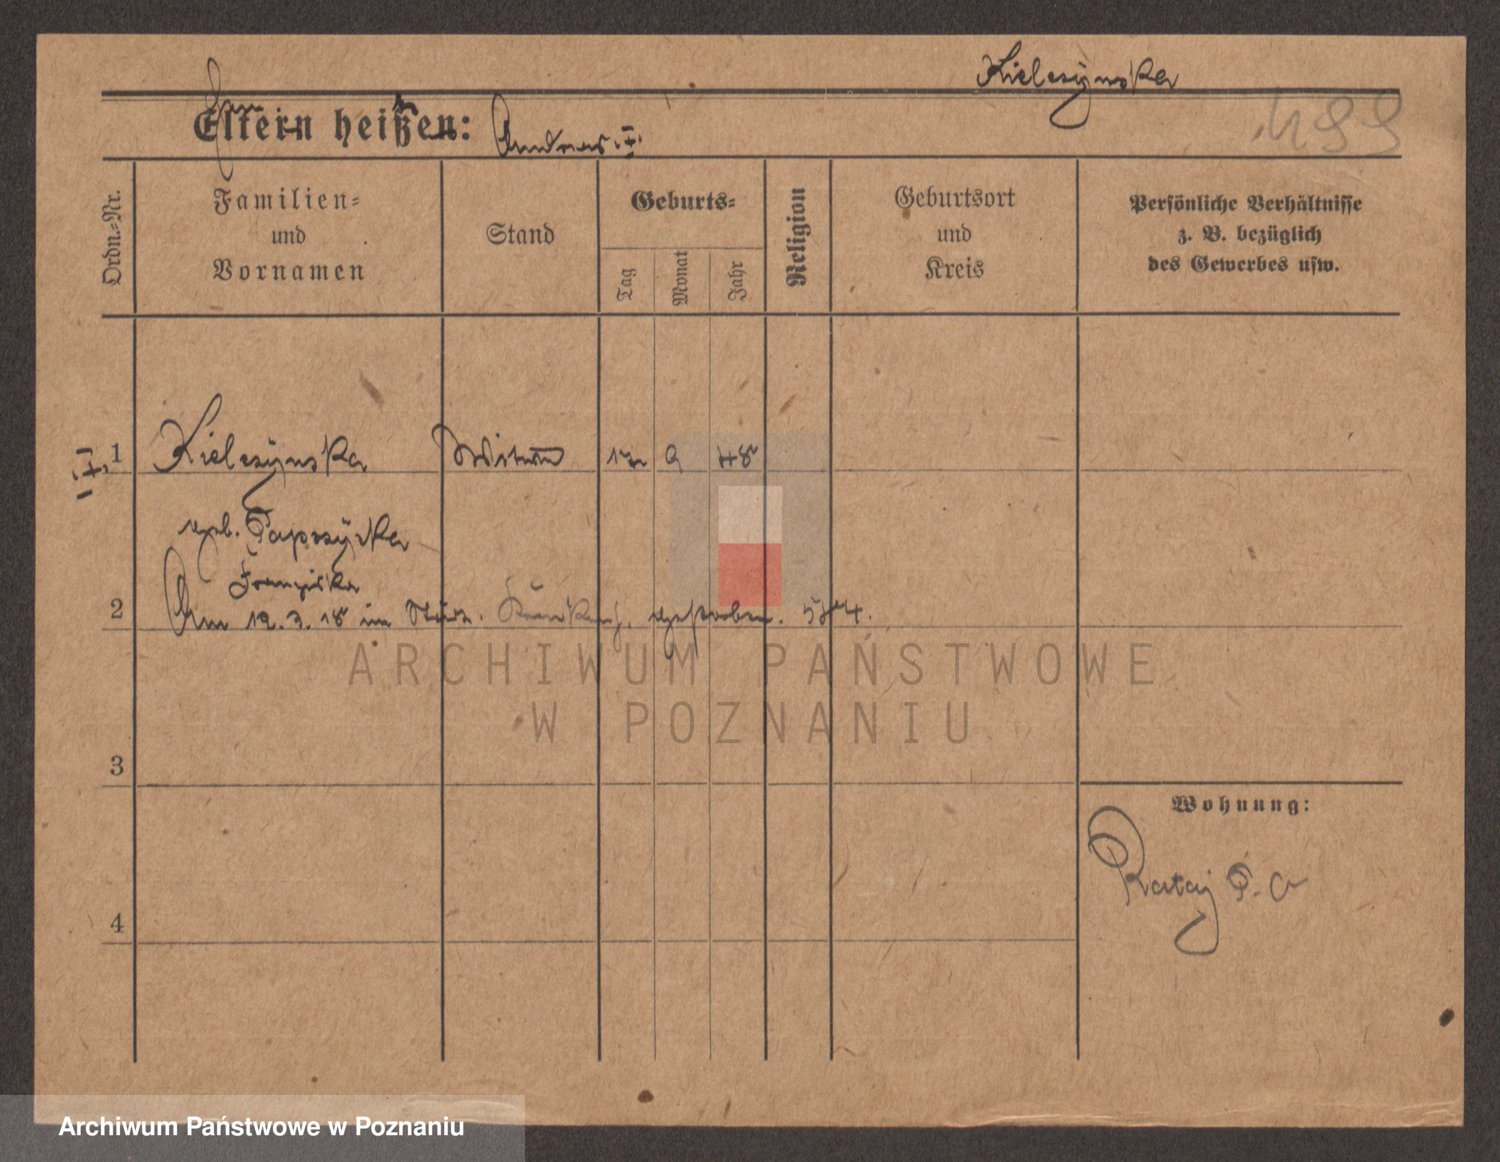 Kielczynska
499
Eltern heißen: Andreas. †.
Ordn.=Nr.
Familien=
und
Vornamen
Stand
Geburts=
Tag
Monat
Jahr
Religion
Geburtsort
und
Kreis
Persönliche Verhältnisse
z. B. bezüglich
des Gewerbes usw.
1 Kielczynska Witwe 12 9 48
geb.
Franziska
2 Am 12. 3. 18 im Städt. Krankenh. gestorben.
ARCHIWUM PAŃSTWOWE
W POZNANIU
3
Wohnung:
Rataj
4
Archiwum Państwowe w Poznaniu